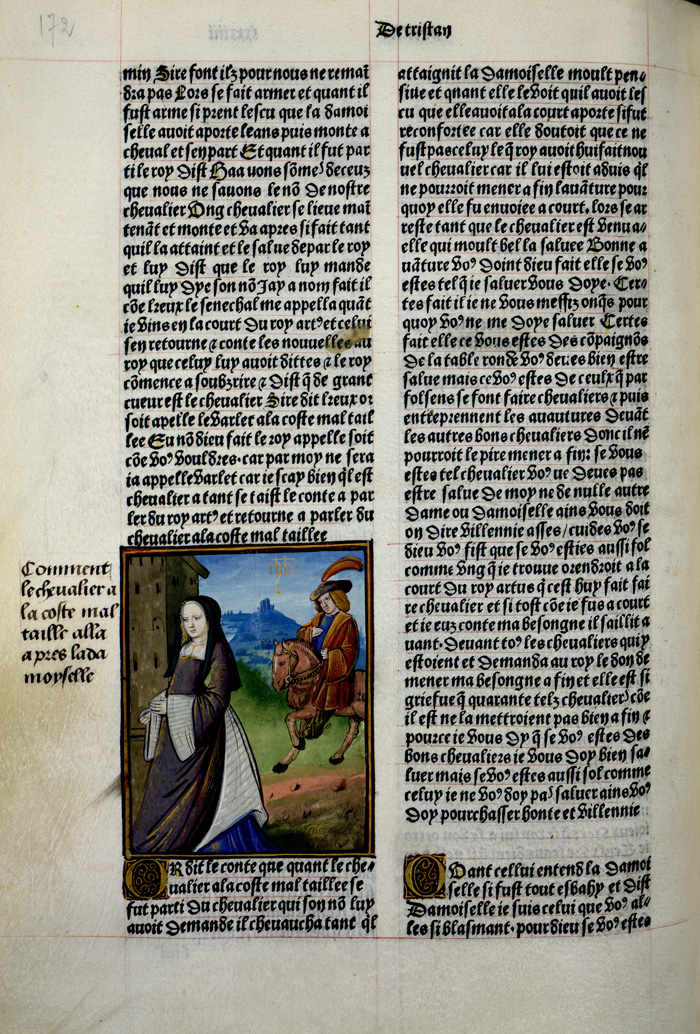 172
De tristan
min Sire font ilz pour nous ne remai
dra pas Lors se fait armer et quant il
fust arme si prent lescu que la damoi
selle auoit aporte leans puis monte a
cheval et sen part Et quant il fut par
ti le roy dist Haa vous sōmes deceuz
que nous ne sauons le nō de nostre
chevalier Ung chevalier se lieue mai
tenāt et monte et va apres si fait tant
quil la attaint et le salue de par le roy
et luy dist que le roy luy mande
quil luy dye son nō Jay a nom fait il
cōe kreux le senechal me appella quāt
ie vins en la court du roy art⁹ et celui
sen retourne ⁊ conte les nouuelles au
roy que celuy luy auoit dittes ⁊ le roy
cōmence a soubzrire ⁊ dist q̄ de grant
cueur est le chevalier Sire dit kreux or
soit apelle le varlet a la coste mal tail
lee Eu nō dieu fait le roy appelle soit
cōe vo⁹ vouldres. car par moy ne sera
ia appelle varlet car ie scay bien q̄l est
chevalier a tant se taist le conte a par
ler du roy art⁹ et retourne a parler du
chevalier a la coste mal taillee
Comment
le chevalier a
la coste mal
taille alla
apres la da
moyselle
OR dit le conte que quant le che
ualier a la coste mal taillee se
fut parti du chevalier qui son nō luy
auoit demande il cheuaucha tant q̄l
attaignit la damoiselle moult pen
siue et quant elle le voit quil auoit les
cu que elle auoit a la court aporte si fut
reconfortee car elle doutoit que ce ne
fust pas celuy le q̄ roy auoit hui fait nou
uel chevalier car il lui estoit aduis q̄l
ne pourroit mener a fin lauāture pour
quoy elle fu enuoiee a court. lors se ar
reste tant que le chevalier est venu a
elle qui moult bel la saluee Bonne a
uāture vo⁹ doint dieu fait elle se vo⁹
estes tel q̄ ie saluer vous doye. Cer
tes fait il ie ne vous meffiz onq̄s pour
quoy vo⁹ ne me doye saluer Certes
fait elle ce vous estes des cōpaignōs
de la table ronde vo⁹ deues bien estre
salue mais ce vo⁹ estes de ceulx q̄ par
fol sens se font faire chevaliers ⁊ puis
entreprennent les auantures deuāt
les autres bons chevaliers donc il nē
pourroit le pire mener a fin: se vous
estes tel chevalier vo⁹ ne deues pas
estre salue de moy ne de nulle autre
dame ou damoiselle ains vous doit
on dire villennie asses / cuides vo⁹ se
dieu vo⁹ fist que se vo⁹ esties aussi fol
comme vng q̄ ie trouue orendroit a la
court du roy artus q̄ cest huy fait fai
re chevalier et si tost cōe ie fus a court
et ie euz conte ma besongne il saillit a
uant. Deuant to⁹ les chevaliers qui y
estoient et demanda au roy le don de
mener ma besongne a fin et elle est si
griefue q̄ quarante telz chevaliers cōe
il est ne la mettroient pas bien a fin ⁊
pource ie vous dy q̄ se vo⁹ estes des
bons chevaliers ie vous doy bien sa
luer mais se vo⁹ estes aussi fol comme
celuy ie ne vo⁹ doy pas saluer ains vo⁹
doy pourchasser honte et villennie
Quant cellui entend la damoi
selle si fust tout esbahy et dist
Damoiselle ie suis celui que vo⁹ al
les si blasmant. pour dieu se vo⁹ estes